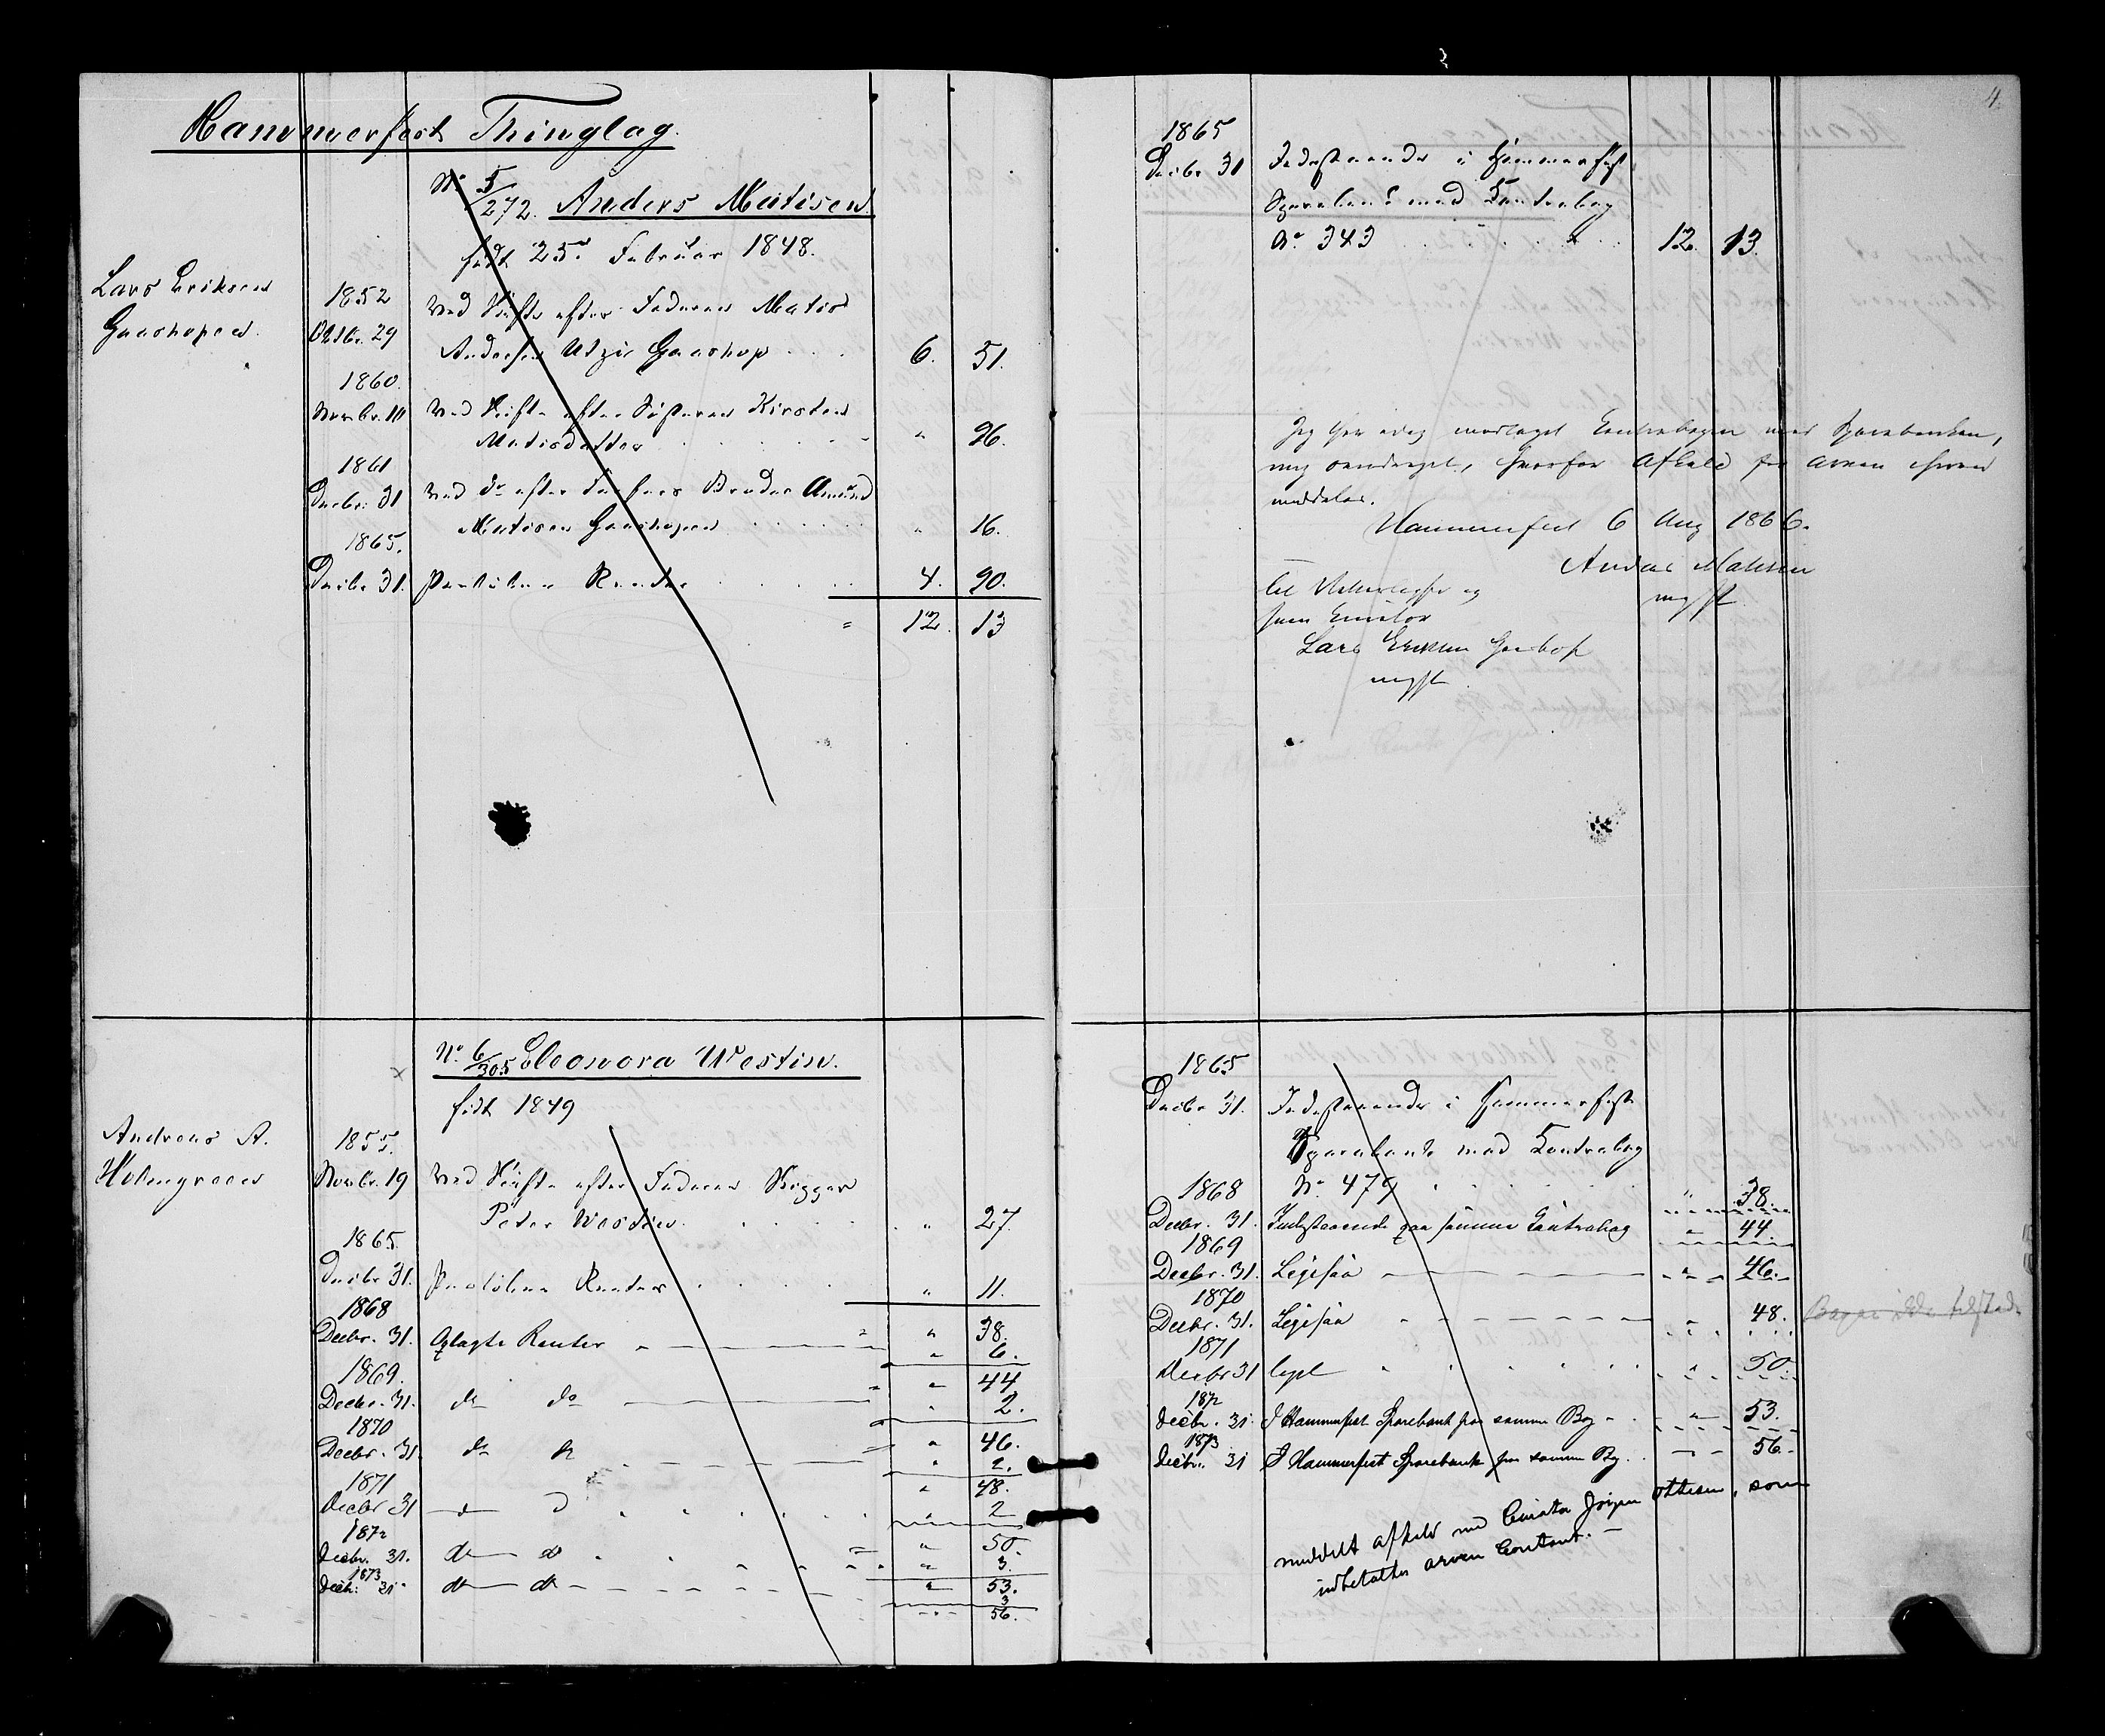 Hammerfest Thinglag.
No 5/272. Anders Matisen
født 25de Februar 1848.
Lars Eriksen
Gaashopen.
1852
Oktbr. 29 Ved Skifte efter Faderen Matis
Andersen Gaashop 6. 51.
1860.
Novbr. 10 Ved Skifte efter Søsteren Kirsten
Matisdatter " 26.
1861
Decbr. 31 Ved do efter Farfars Broder Amund
Matisen Gaashopen " 16.
1865.
Decbr 31. Paaløbne Renter 4. 90.
= 12. 13
No. 6/305 Eleonora Westin.
født 1849
Andreas A.
Holmgreen
1855.
Novbr. 19 Ved Skifte efter Faderen Skipper
Peter Westin " 27.
1865.
Decbr 31. Paaløbne Renter " 11.
1868 " 38.
Decbr. 31. Oplagte Renter " 6.
1869. " 44
Decbr. 31. do do " 2.
1870 " 46.
Decbr. 31. do do " 2.
1871 " 48.
Decbr 31 do do " 2
1872 " 50.
Decbr. 31. do do " 3.
1873 " 53.
Decbr. 31. do do 3
" 56.
4.
1865
Decbr 31 Indestaaende i Hammerfest
Sparebank med Kontrabog
No. 343 12. 13.
Jeg har idag modtaget Contrabogen med Sparebanken,
mig overdraget, hvorfor Afkald for Arven herved
meddeles.
Hammerfest 6 Aug 1866.
Anders Matisen
mpS
til Vitterlighed og
som Curator
Lars Eriksen Gaashop
mpS
1865
Decbr 31. Indestaaende i Hammerfest
Sparebank med Kontrabog
No. 479 " 38.
1868
Decbr. 31. Indestaaende paa samme Contrabog " 44.
1869
Decbr. 31. Ligesaa " 46.
1870
Decbr. 31. Ligesaa " 48. Bogen ikke tilstede
1871
Decbr 31 " 50.
1872
Decbr. 31. I Hammerfest Sparebank paa samme Bog " 53.
1873
Decbr. 31 I Hammerfest Sparebank paa samme Bog 56.
meddelt afkald med Curator Jørgen Ottesen, som
indbetalte arven Contant.